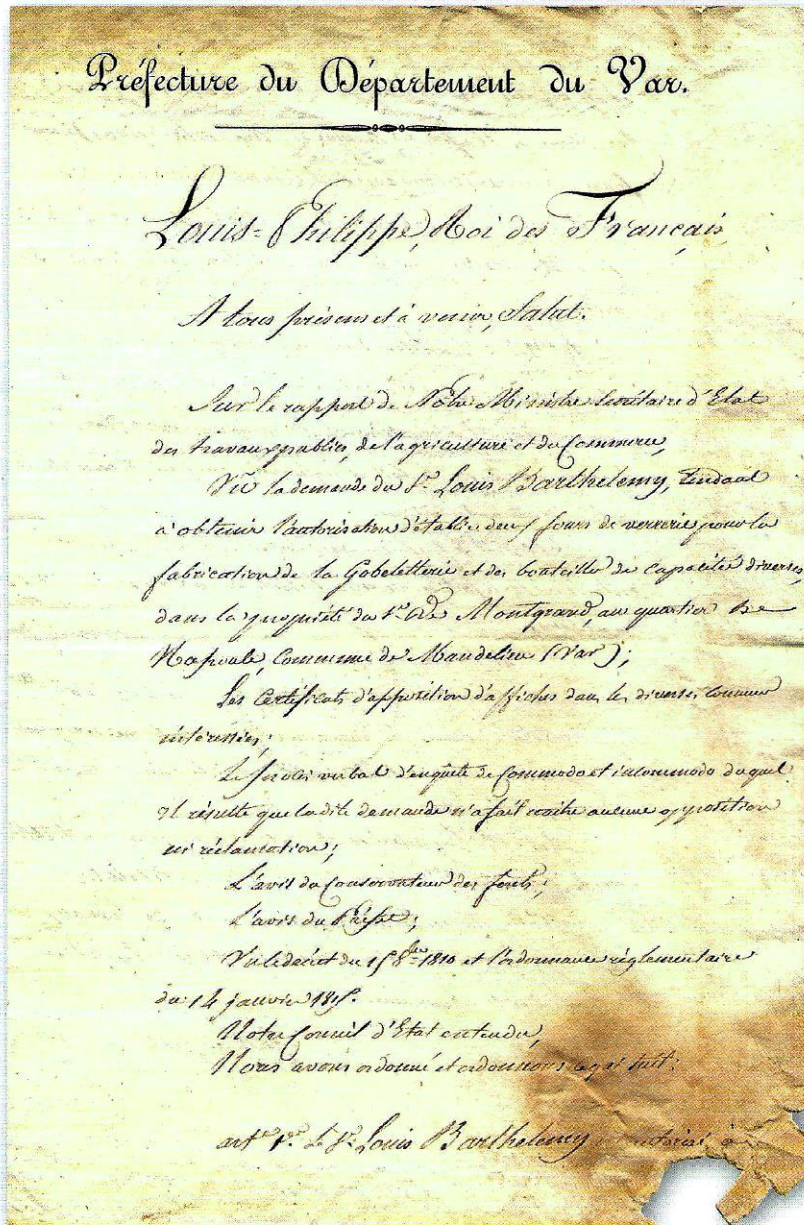 Préfecture du Département du Var.
Louis=Philippe, Roi des Français
A tous présens et à venir, Salut.
Sur le rapport de Notre Ministre Secrétaire d'Etat
des travaux publics, de l'agriculture et du Commerce,
Vu la demande du Sr. Louis Barthelemy, tendant
à obtenir l'autorisation d'établir deux fours de verrerie pour la
fabrication de la Gobeletterie et des bouteilles de capacités diverses,
dans la propriété du Sr. de Montgrand, au quartier de
Napoule, Commune de Mandelieu (Var);
Les Certificats d'apposition d'affiches dans les diverses communes
intéressées;
Le procès verbal d'enquête de Commodo et incommodo duquel
il résulte que la dite demande n'a fait naître aucune opposition
ni réclamation;
L'avis du Conservateur des forêts;
L'avis du Préfet;
Vu le décret du 15 8bre 1810 et l'ordonnance réglementaire
du 14 janvier 1815.
Notre Conseil d'Etat entendu,
Nous avons ordonné et ordonnons ce qui suit:
art. 1er. Le Sr. Louis Barthelemy autorisé à